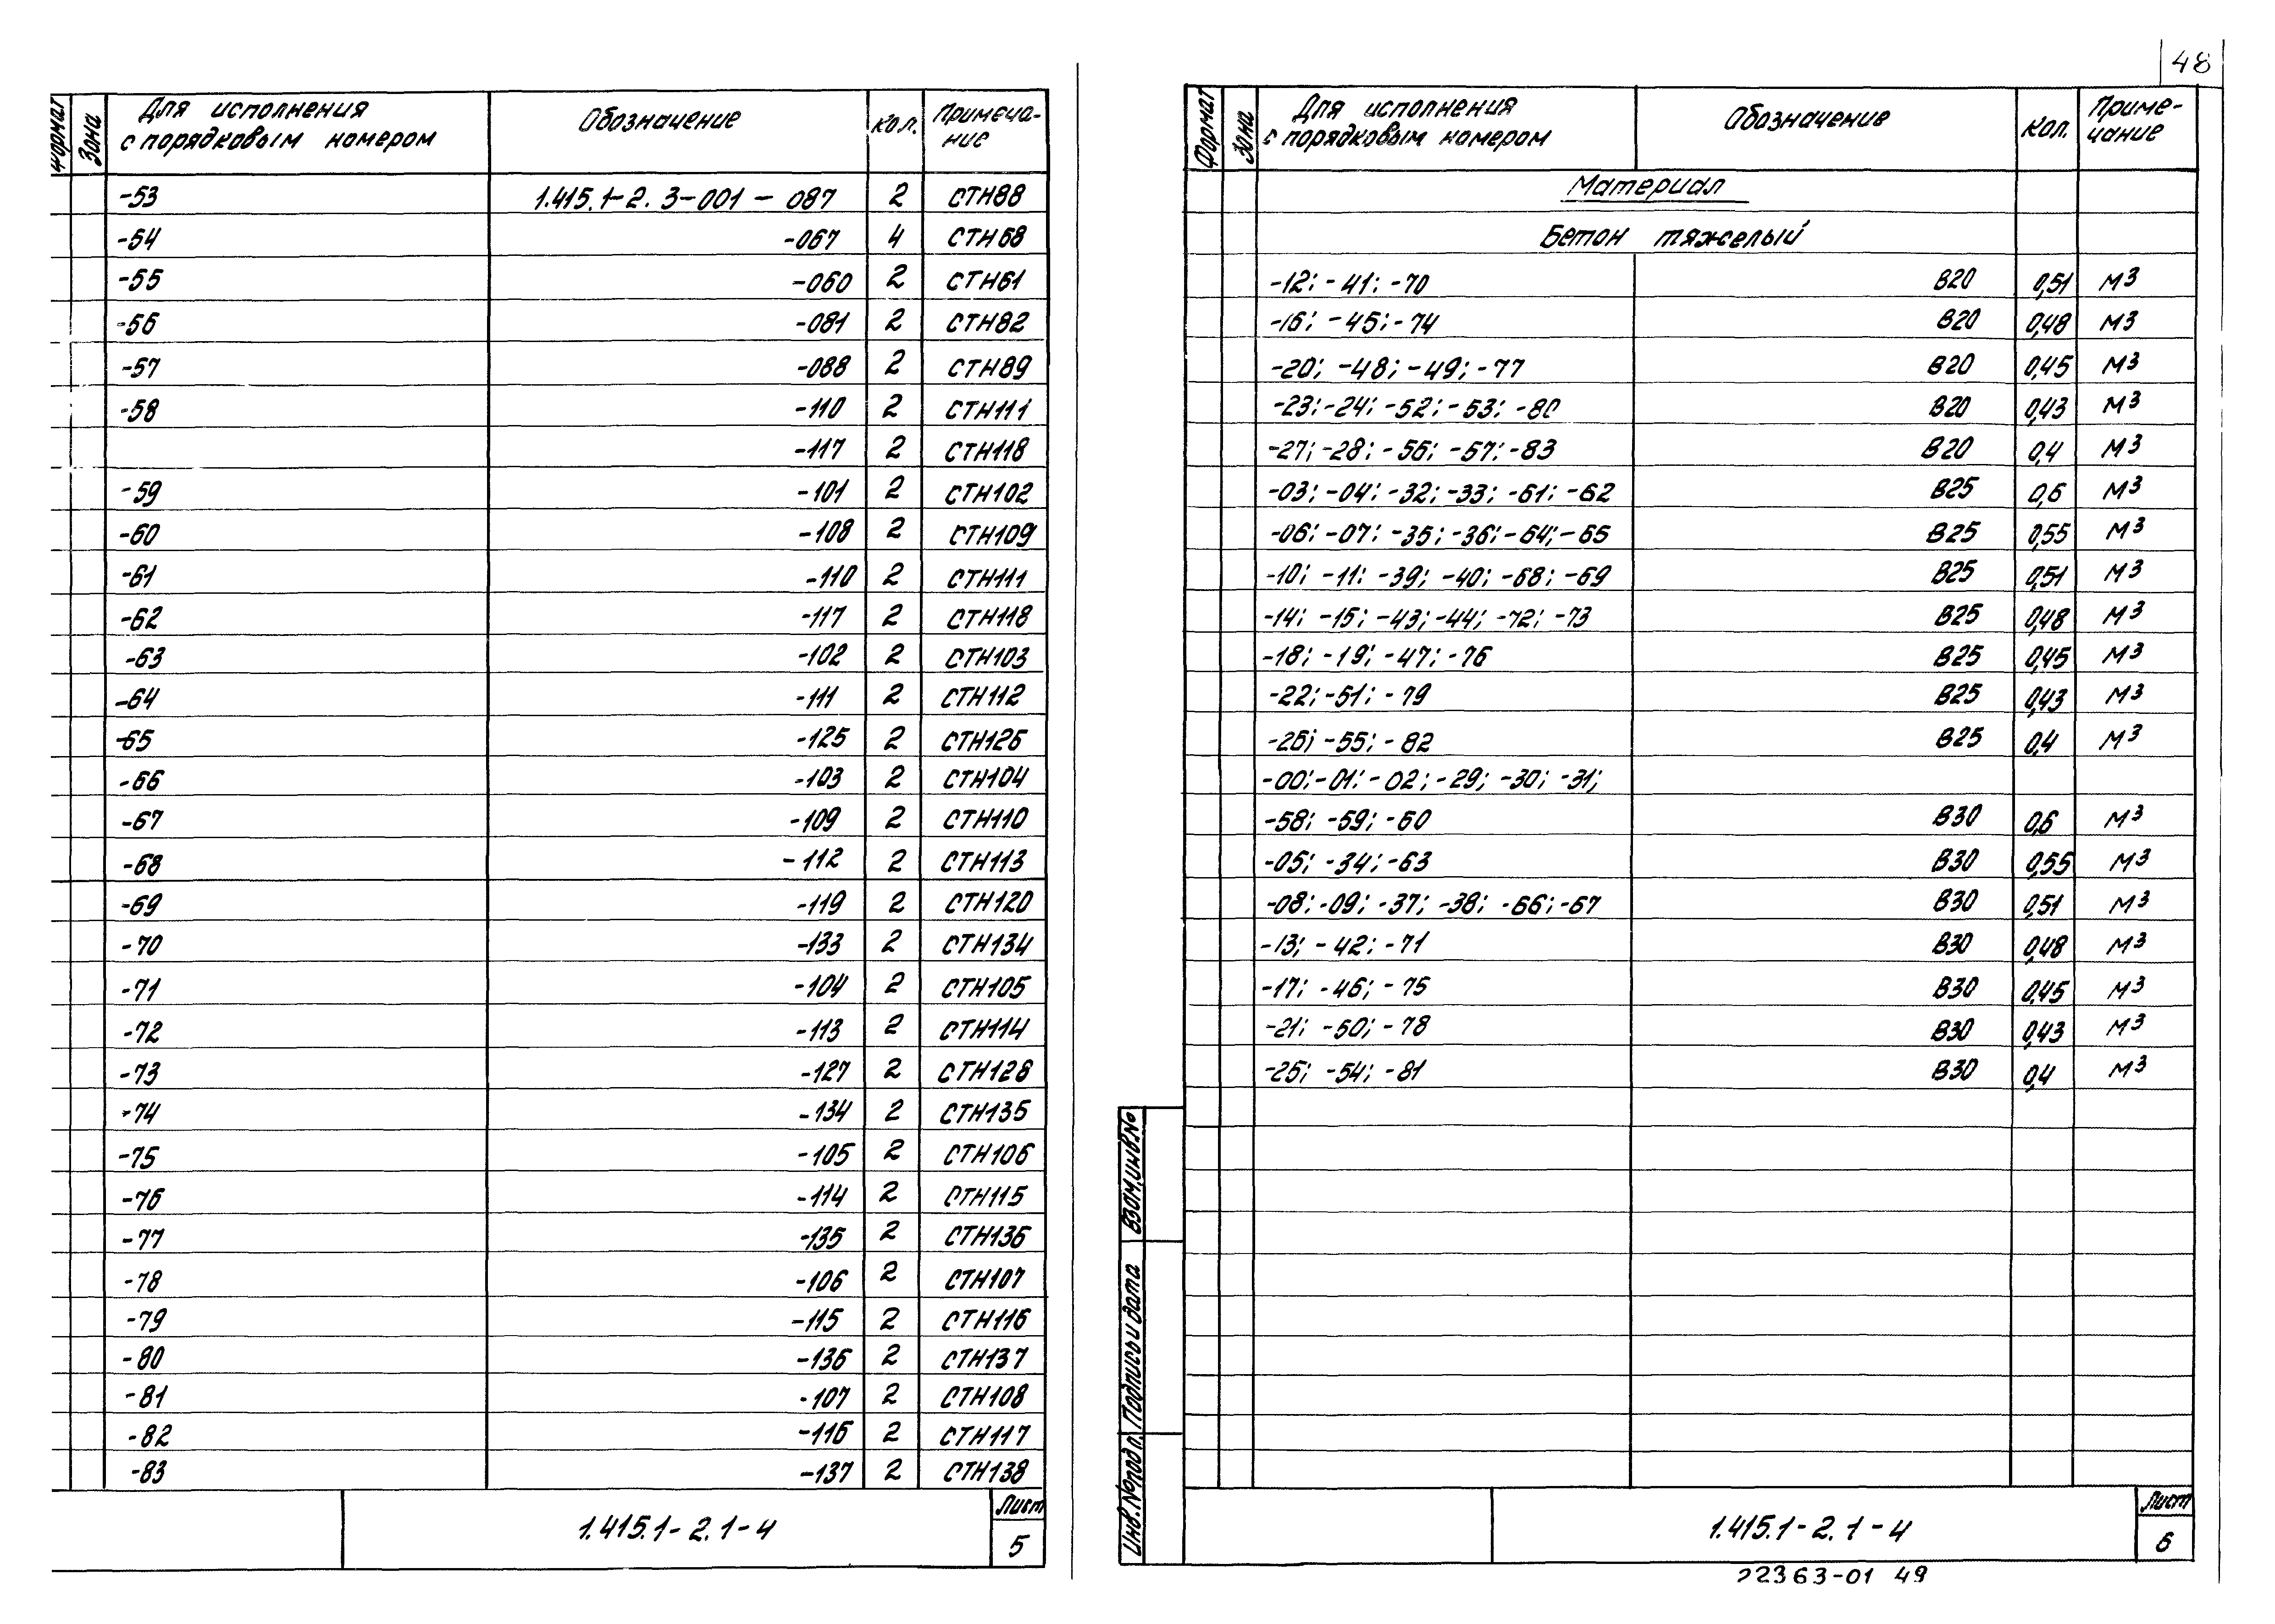 48
Формат Зона Для исполнения с порядковым номером Обозначение Кол. Примечание
-53 1.415.1-2. 3-001 - 087 2 СТН88
-54 -067 4 СТН68
-55 -060 2 СТН61
-56 -081 2 СТН82
-57 -088 2 СТН89
-58 -110 2 СТН111
-117 2 СТН118
-59 -101 2 СТН102
-60 -108 2 СТН109
-61 -110 2 СТН111
-62 -117 2 СТН118
-63 -102 2 СТН103
-64 -111 2 СТН112
-65 -125 2 СТН126
-66 -103 2 СТН104
-67 -109 2 СТН110
-68 -112 2 СТН113
-69 -119 2 СТН120
-70 -133 2 СТН134
-71 -104 2 СТН105
-72 -113 2 СТН114
-73 -127 2 СТН128
-74 -134 2 СТН135
-75 -105 2 СТН106
-76 -114 2 СТН115
-77 -135 2 СТН136
-78 -106 2 СТН107
-79 -115 2 СТН116
-80 -136 2 СТН137
-81 -107 2 СТН108
-82 -116 2 СТН117
-83 -137 2 СТН138
1.415.1-2.1-4
Лист
5
Формат Зона Для исполнения с порядковым номером Обозначение Кол. Примечание
Материал
Бетон тяжелый
-12; -41; -70 В20 0,51 м3
-16; -45; -74 В20 0,48 м3
-20; -48; -49; -77 В20 0,45 м3
-23; -24; -52; -53; -80 В20 0,43 м3
-27; -28; -56; -57; -83 В20 0,4 м3
-03; -04; -32; -33; -61; -62 В25 0,6 м3
-06; -07; -35; -36; -64; -65 В25 0,55 м3
-10; -11; -39; -40; -68; -69 В25 0,51 м3
-14; -15; -43; -44; -72; -73 В25 0,48 м3
-18; -19; -47; -76 В25 0,45 м3
-22; -51; -79 В25 0,43 м3
-26; -55; -82 В25 0,4 м3
-00; -01; -02; -29; -30; -31;
-58; -59; -60 В30 0,6 м3
-05; -34; -63 В30 0,55 м3
-08; -09; -37; -38; -66; -67 В30 0,51 м3
-13; -42; -71 В30 0,48 м3
-17; -46; -75 В30 0,45 м3
-21; -50; -78 В30 0,43 м3
-25; -54; -81 В30 0,4 м3
Инв. № подл. Подпись и дата Взам. инв. №
1.415.1-2.1-4
Лист
6
22363-01 49